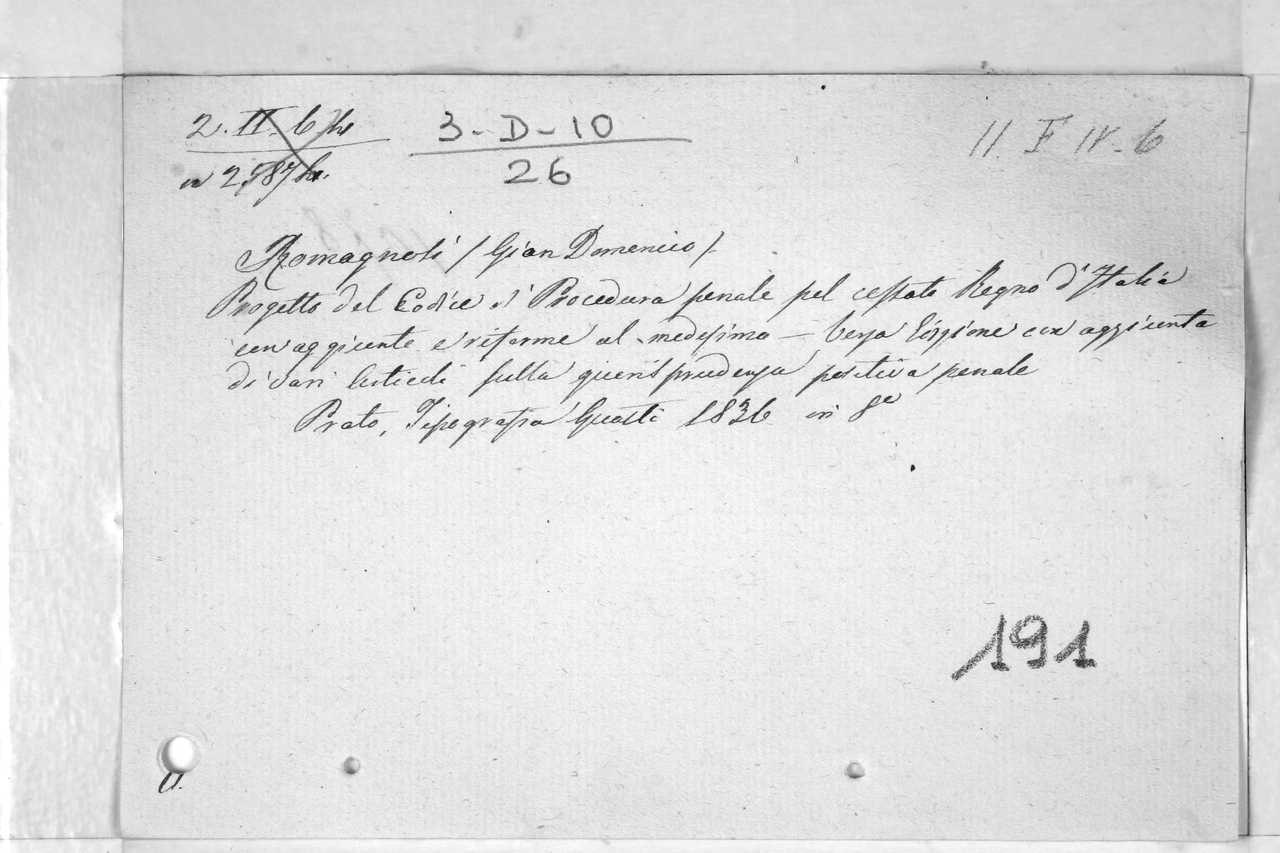 2. II. 6
3-D-10
26
II F IV. 6
Romagnosi / Gian Domenico /
Progetto del Codice di Procedura penale pel cessato Regno d'Italia
con aggiunte e riforme al medesimo — Terza Edizione con aggiunta
di vari articoli sulla giurisprudenza positiva penale
Prato, Tipografia Guasti 1836 in 8º
191